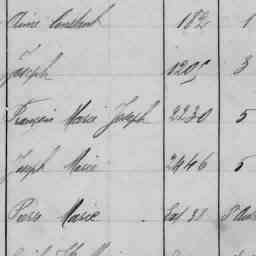 Aimé Constant 182 1
Joseph 1205 3
François Marie Joseph 2230 5
Joseph Marie 2446 5
Pierre Marie 38